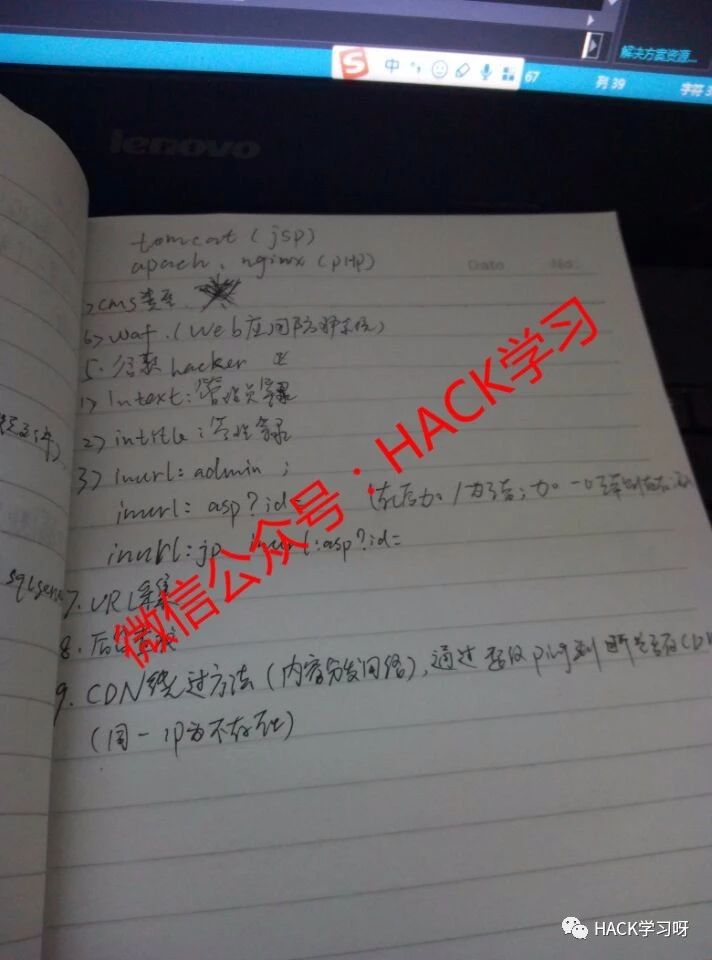 解决方案资源...
中
67
列 39
字符 3
lenovo
tomcat (jsp)
apach、nginx (PHP)
Date No.
cms类型、
6> waf.(Web应用防御系统)
5. 谷歌hacker
1> Intext:管理员登录
2> intitle:管理登录
3> inurl: admin ;
inurl: asp?id=
inurl:jp inurl:asp?id=
7. URL采集
8. 后台查找
9. CDN绕过方法(内容分发网络),通过 ping 判断是否有CDN
(同一ip为不存在)
微信公众号·HACK学习
HACK学习呀